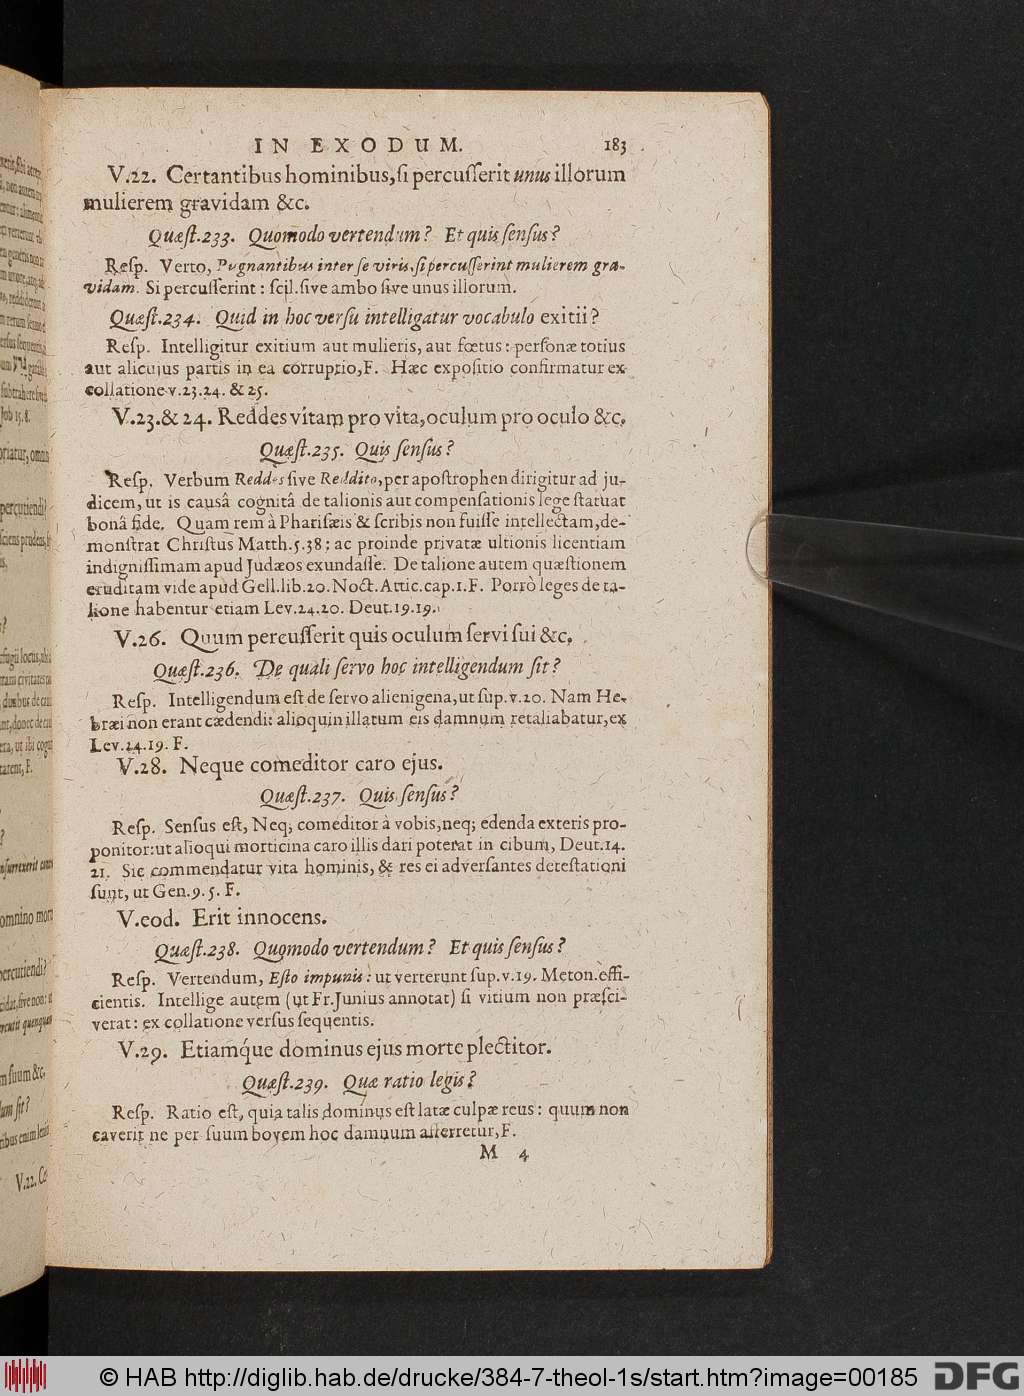 IN EXODUM. 183
V.22. Certantibus hominibus, ſi percuſſerit unus illorum
mulierem gravidam &c.
Quæſt.233. Quomodo vertendum? Et quis ſenſus?
Reſp. Verto, Pugnantibus inter ſe viris, ſi percuſſerint mulierem gra-
vidam. Si percuſſerint: ſcil. ſive ambo ſive unus illorum.
Quæſt.234. Quid in hoc verſu intelligatur vocabulo exitii?
Reſp. Intelligitur exitium aut mulieris, aut fœtus: perſonæ totius
aut alicujus partis in ea corruptio, F. Hæc expoſitio confirmatur ex
collatione v.23.24. & 25.
V.23.& 24. Reddes vitam pro vita, oculum pro oculo &c.
Quæſt.235. Quis ſenſus?
Reſp. Verbum Reddes ſive Reddito, per apoſtrophen dirigitur ad ju-
dicem, ut is cauſâ cognitâ de talionis aut compenſationis lege ſtatuat
bonâ fide. Quam rem à Phariſæis & ſcribis non fuiſſe intellectam, de-
monſtrat Chriſtus Matth.5.38; ac proinde privatæ ultionis licentiam
indigniſſimam apud Judæos exundaſſe. De talione autem quæſtionem
eruditam vide apud Gell.lib.20. Noct. Attic.cap.1.F. Porrò leges de ta-
lione habentur etiam Lev.24.20. Deut.19.19.
V.26. Quum percuſſerit quis oculum ſervi ſui &c.
Quæſt.236. De quali ſervo hoc intelligendum ſit?
Reſp. Intelligendum eſt de ſervo alienigena, ut ſup.v.20. Nam He-
bræi non erant cædendi: alioquin illatum eis damnum retaliabatur, ex
Lev.24.19. F.
V.28. Neque comeditor caro ejus.
Quæſt.237. Quis ſenſus?
Reſp. Senſus eſt, Neq; comeditor à vobis, neq; edenda exteris pro-
ponitor: ut alioqui morticina caro illis dari poterat in cibum, Deut.14.
21. Sic commendatur vita hominis, & res ei adverſantes deteſtationi
ſunt, ut Gen.9.5. F.
V.eod. Erit innocens.
Quæſt.238. Quomodo vertendum? Et quis ſenſus?
Reſp. Vertendum, Eſto impunis: ut verterunt ſup.v.19. Meton.effi-
cientis. Intellige autem (ut Fr.Junius annotat) ſi vitium non præſci-
verat: ex collatione verſus ſequentis.
V.29. Etiamq́ue dominus ejus morte plectitor.
Quæſt.239. Quæ ratio legis?
Reſp. Ratio eſt, quia talis dominus eſt latæ culpæ reus: quum non
caverit ne per ſuum bovem hoc damnum afferretur, F.
M 4
© HAB http://diglib.hab.de/drucke/384-7-theol-1s/start.htm?image=00185
DFG